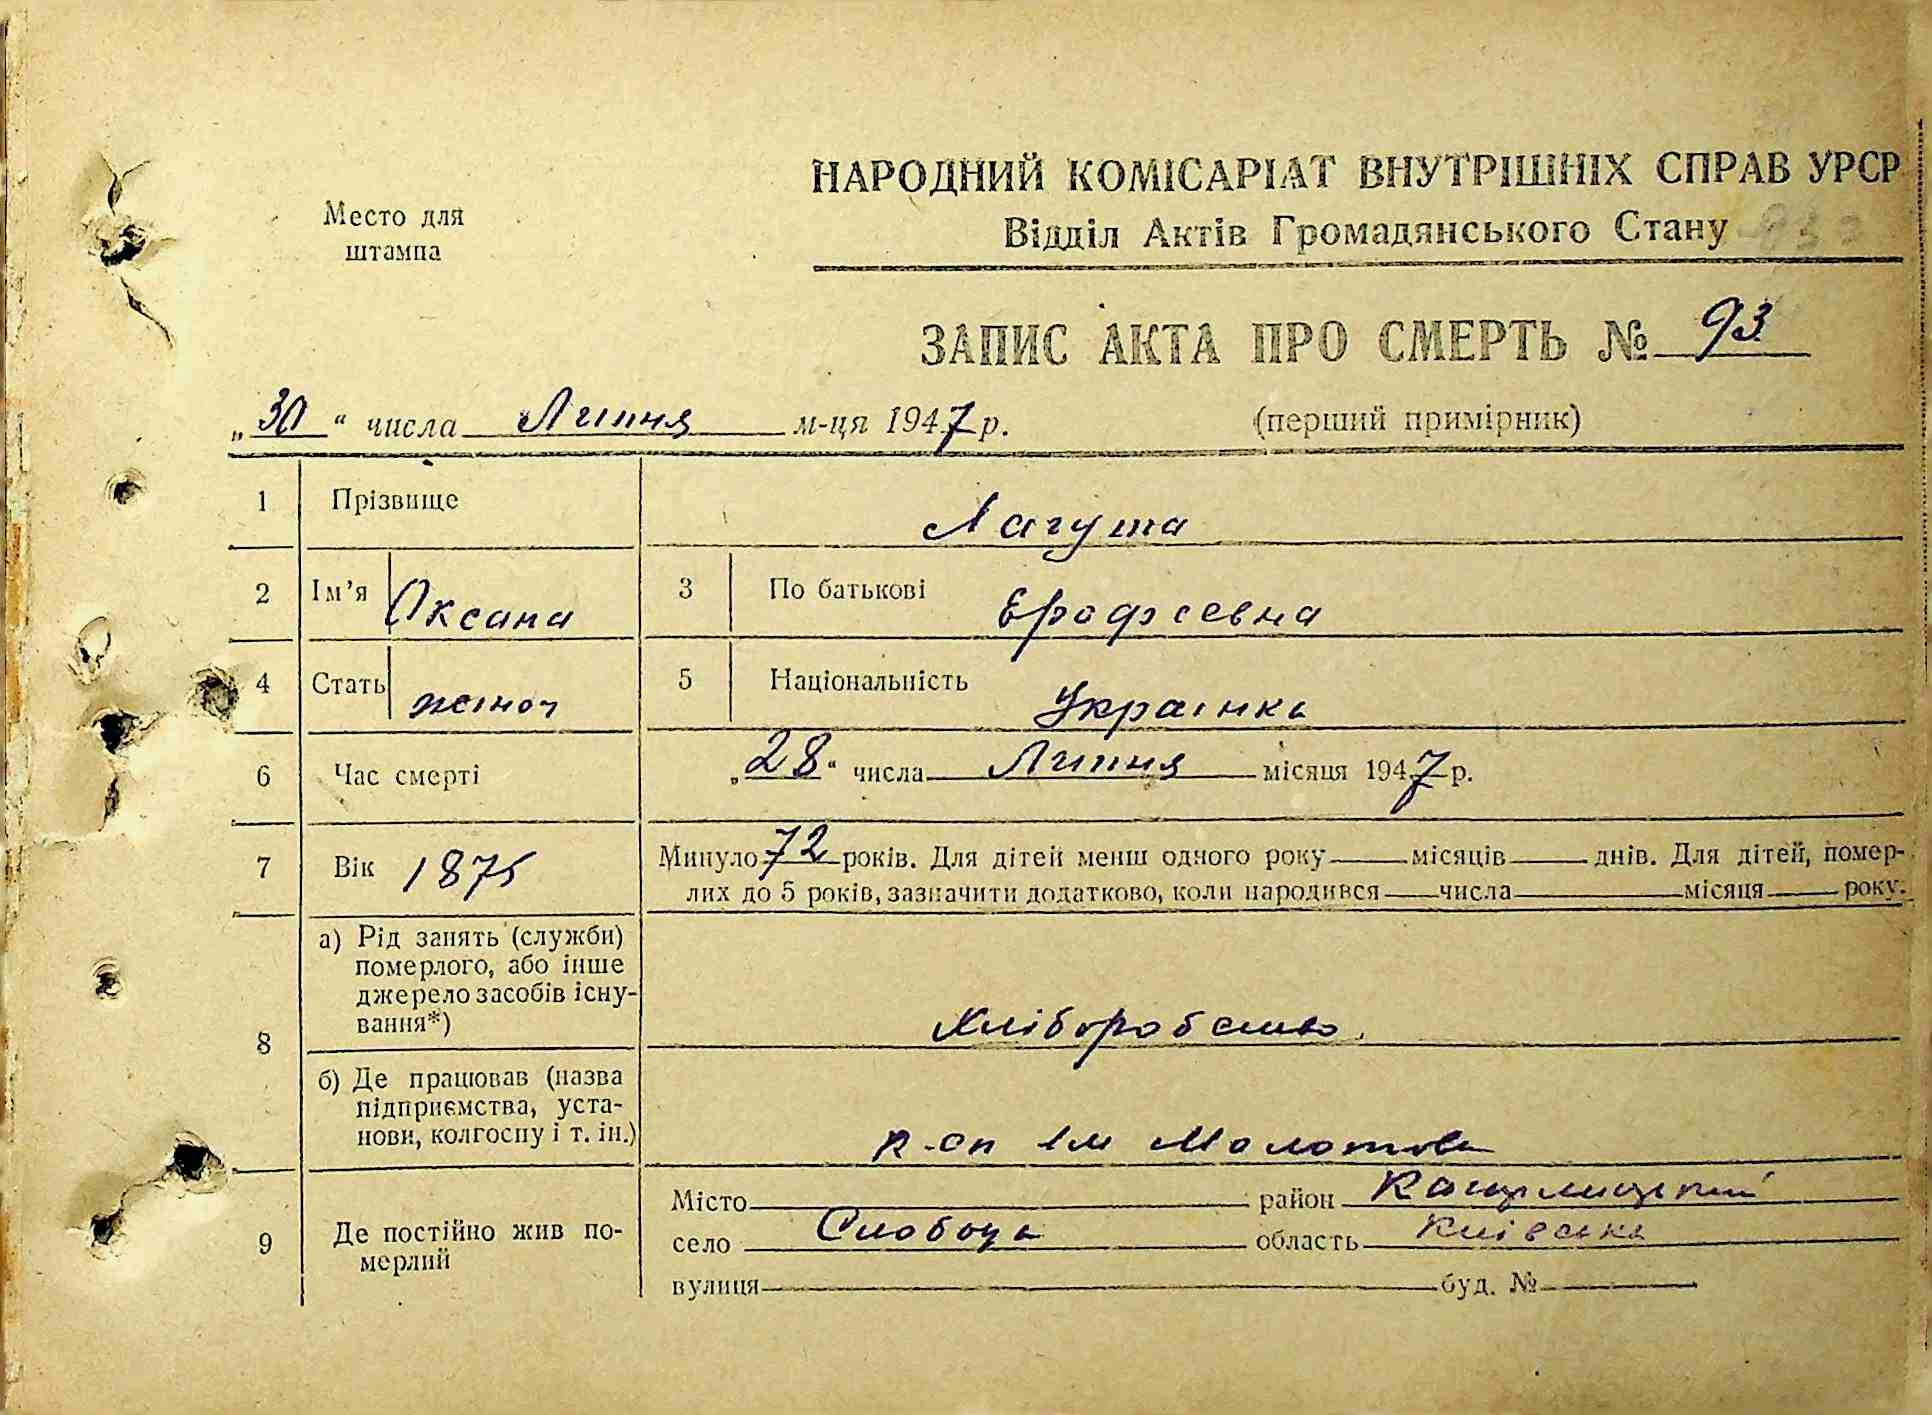 НАРОДНИЙ КОМІСАРІАТ ВНУТРІШНІХ СПРАВ УРСР
Место для штампа
Відділ Актів Громадянського Стану
ЗАПИС АКТА ПРО СМЕРТЬ № 93
„30“ числа Липня м-ця 1947 р. (перший примірник)
1 Прізвище Лагута
2 Ім’я Оксана 3 По батькові Ерофеевна
4 Стать жіноч 5 Національність Українка
6 Час смерті „28“ числа Липня місяця 1947 р.
7 Вік 1875 Минуло 72 років. Для дітей менш одного року місяців днів. Для дітей, помер-
лих до 5 років, зазначити додатково, коли народився числа місяця року.
8 а) Рід занять (служби)
померлого, або інше
джерело засобів існу-
вання*) Хліборобство.
б) Де працював (назва
підприємства, уста-
нови, колгоспу і т. ін.) к-сп ім Молотова
9 Де постійно жив по-
мерлий
Місто район Кагарлицький
село Слобода область Київська
вулиця буд. №